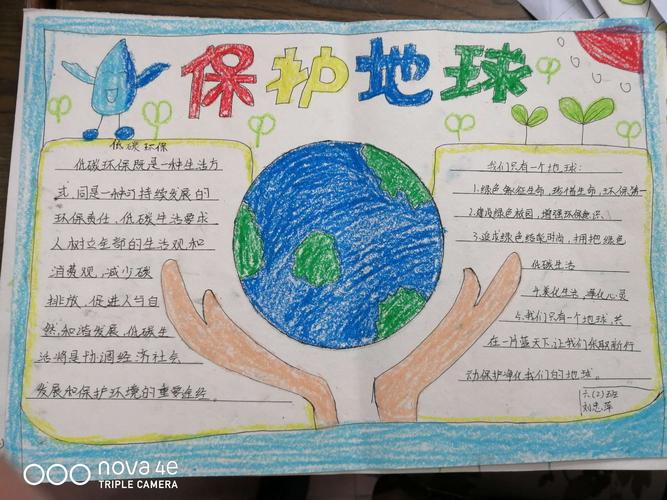 保护地球
低碳环保
低碳环保既是一种生活方
式,同是一种可持续发展的
环保责任,低碳生活要求
人树立全部的生活观和
消费观,减少碳
排放,促进人与自
然和谐发展,低碳生
活将是协调经济社会
发展和保护环境的重要途经。
我们只有一个地球:
1.绿色象征生命,珍惜生命,环保第一
2.建设绿色校园,增强环保意识。
3.追求绿色时尚,拥抱绿色
低碳生活
4.美化生活,净化心灵
5.我们只有一个地球,共
在一片蓝天下,让我们采取新行
动保护净化我们的地球。
六(2)班
刘忠萍
nova 4e
TRIPLE CAMERA